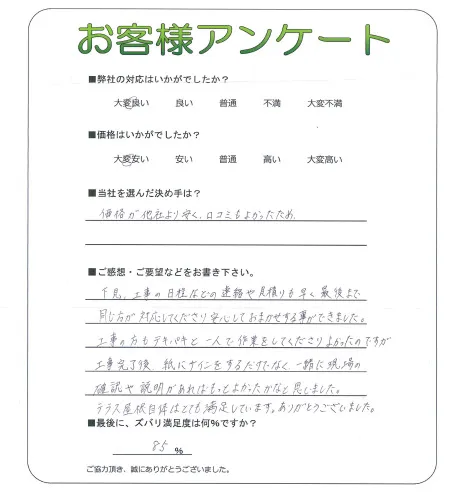 お客様アンケート
■弊社の対応はいかがでしたか？
大変良い 良い 普通 不満 大変不満
■価格はいかがでしたか？
大変安い 安い 普通 高い 大変高い
■当社を選んだ決め手は？
価格が他社より安く、口コミもよかったため
■ご感想・ご要望などをお書き下さい。
下見、工事の日程などの連絡や見積りも早く最後まで
同じ方が対応してくださり安心しておまかせする事ができました。
工事の方もテキパキと一人で作業をしてくださりよかったのですが
工事完了後、紙にサインをするだけでなく一緒に現場の
確認や説明があればもっとよかったかなと思いました。
テラス屋根自体はとても満足しています。ありがとうございました。
■最後に、ズバリ満足度は何％ですか？
85 %
ご協力頂き、誠にありがとうございました。